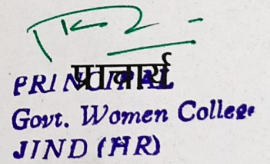 प्राचार्य
PRINCIPAL
Govt. Women College
JIND (HR)